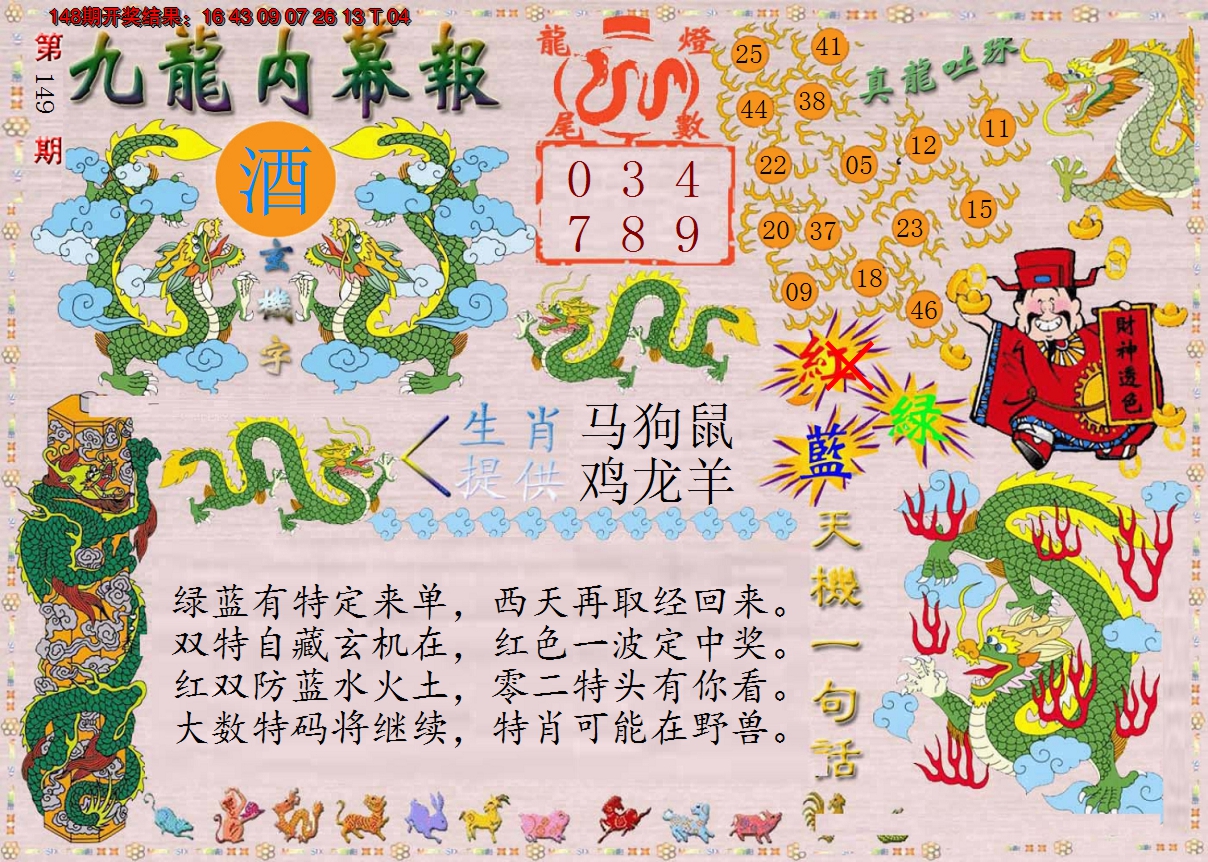 148期开奖结果：16 43 09 07 26 13 T 04
第149期
九龍内幕報
酒
玄機字
龍燈
尾數
0 3 4
7 8 9
真龍吐珠
25 41
44 38
12 11
22 05
15
20 37 23
18
09 46
紅
綠
藍
財神透色
生肖提供
马狗鼠
鸡龙羊
天機一句話
绿蓝有特定来单，西天再取经回来。
双特自藏玄机在，红色一波定中奖。
红双防蓝水火土，零二特头有你看。
大数特码将继续，特肖可能在野兽。